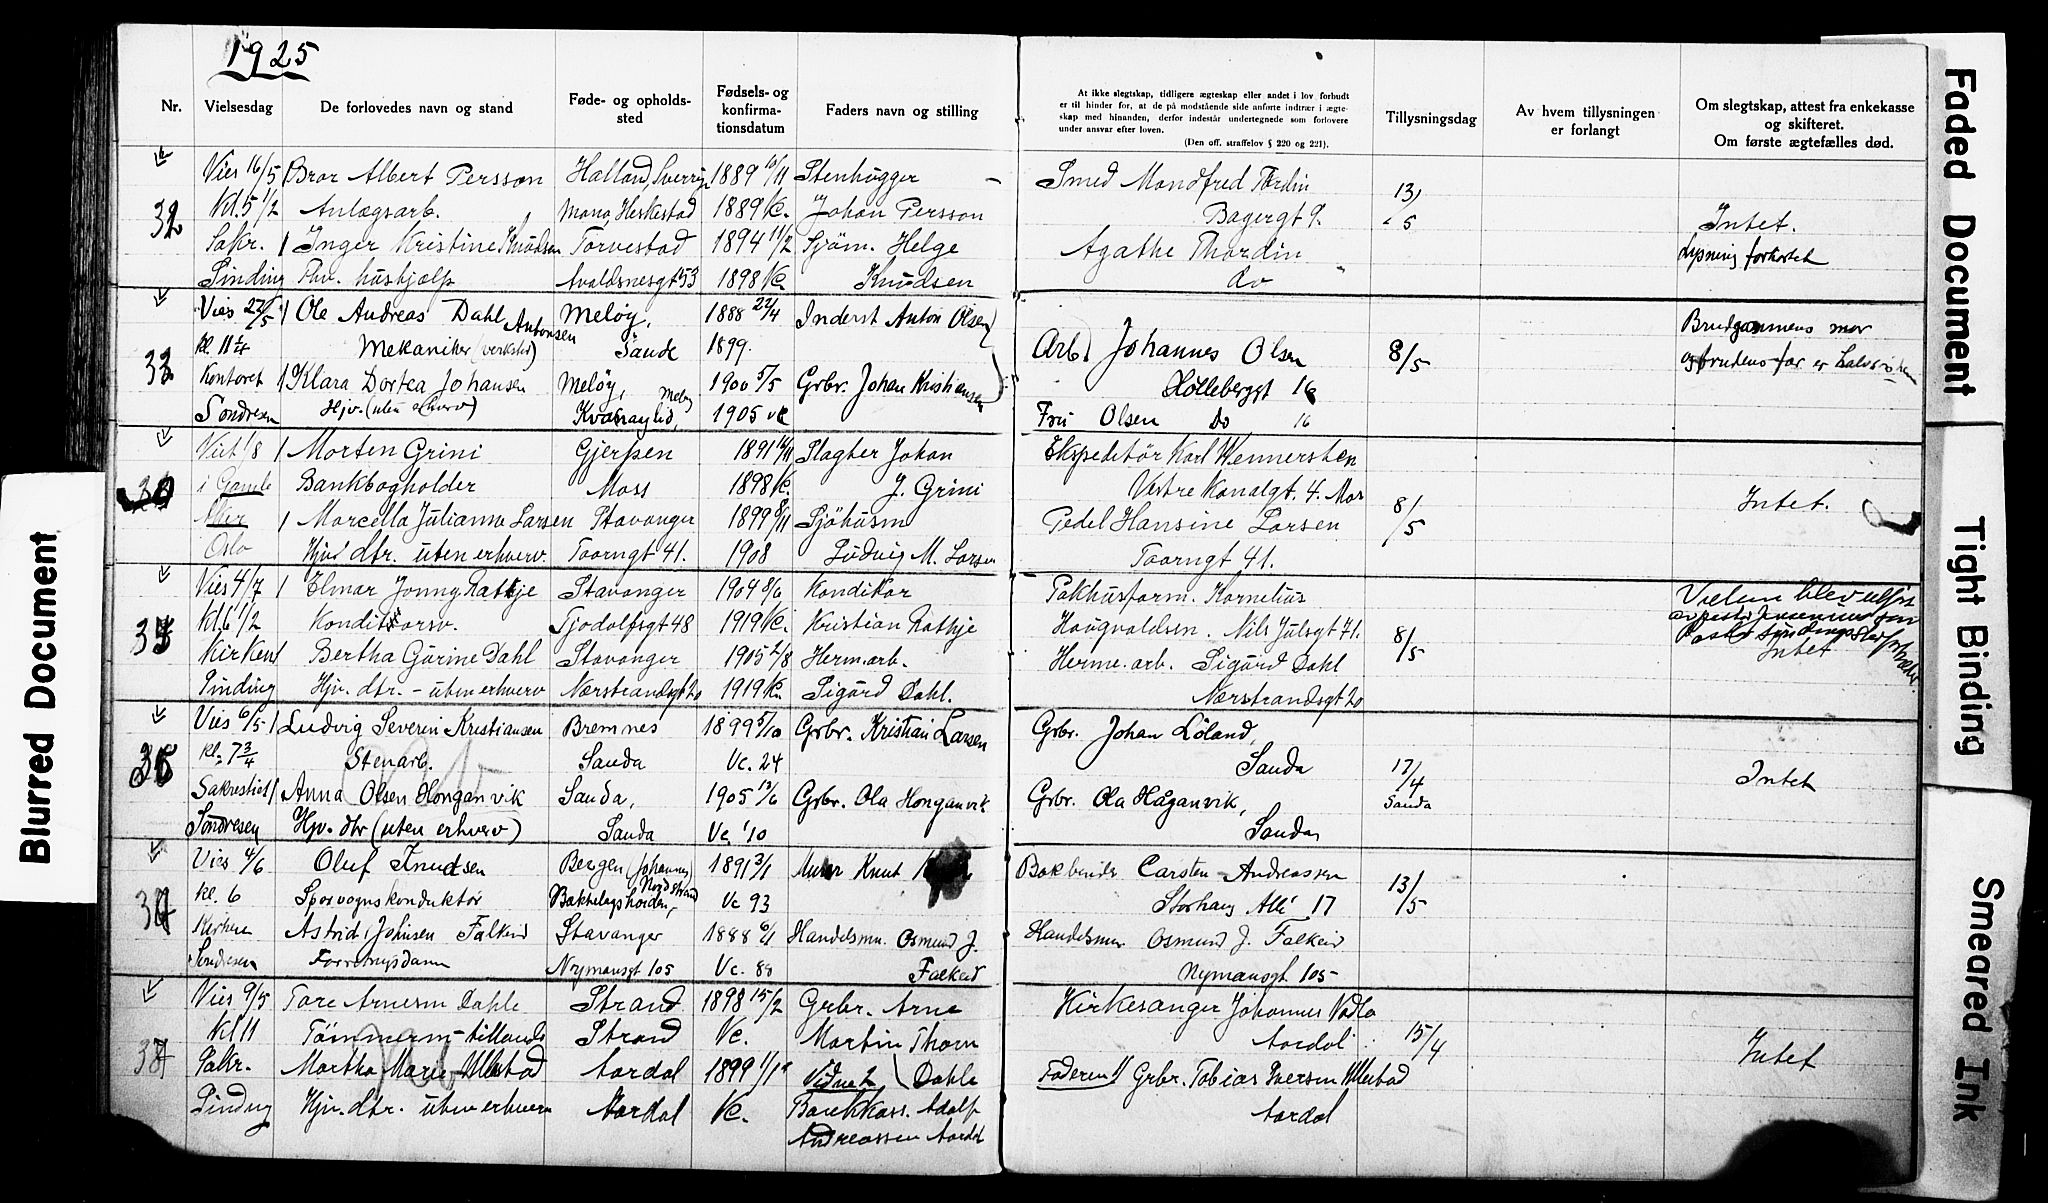 1925
Nr.
Vielsesdag
De forlovedes navn og stand
Føde- og opholds-
sted
Fødsels- og
konfirma-
tionsdatum
Faders navn og stilling
At ikke slegtskap, tidligere ægteskap eller andet i lov forbudt
er til hinder for, at de på modstående side anførte indtrær i ægte-
skap med hinanden, derfor indestår undertegnede som forlovere
under ansvar efter loven.
(Den off. straffelov § 220 og 221).
Tillysningsdag
Av hvem tillysningen
er forlangt
Om slegtskap, attest fra enkekasse
og skifteret.
Om første ægtefælles død.
32
Vies 16/5 Bror Albert Persson Halland, Sverrig 1889 10/11 Stenhugger Smed Mandfred Tordin 13/5
Kl. 5 1/2 Anlægsarb. Heskestad 1889 K. Johan Persson Bagergt 9. Intet.
Sakr. Inger Kristine Knudsen Torvestad 1894 11/2 Sjøm. Helge Agathe Thordin Lysning forkortet
Sinding Fhv. hushjælp Avaldsnesgt 53 1898 K. Knudsen do
33
Vies 22/5 Ole Andreas Dahl Antonsen Meløy, 1888 22/4 Inderst Anton Olsen Brudgommens mor
kl. 11 1/4 Mekaniker (verksted) Sande 1899. Arb. Johannes Olsen 8/5 og brudens far er
Kontoret Klara Dortea Johansen Meløy, 1900 5/5 Grbr. Johan Kristiansen Hollebergt 16
Sondresen Hjv. (uten erhverv) 1905 Fru Olsen Do 16
Viet 1/8 Morten Grini Gjerpen 1891 Slagter Johan Ekspeditør Karl Wennersten
i Gamle Bankbogholder Moss 1898 K. J. Grini Vestre Kanalgt. 4. Mos 8/5 Intet.
Aker Marcella Julianna Larsen Stavanger 1899 8/11 Sjøhusm Pedel Hansine Larsen
Oslo Hjv. dtr. uten erhverv. Taarngt 41. 1908 Ludvig M. Larsen Taarngt 41.
Vies 4/7 Elmar Jonny Ratkje Stavanger 1904 8/6 Konditor Pakhusform. Kornelius Vielsen blev
Kl. 6 1/2 Tjodolfsgt 48 1919 K. Kristian Ratkje Haugvaldsen. Nils Julsgt 71. 8/5
Kirken Bertha Gurine Dahl Stavanger 1905 2/8 Herm. arb. Herme. arb. Sigurd Dahl Intet
Sinding Hjv. dtr. - uten erhverv Nærstrandsgt 20 1919 K. Sigurd Dahl. Nærstrandsgt 20
Vies 6/5 Ludvig Severin Kristiansen Bremnes 1899 5/10 Grbr. Kristian Larsen Grbr. Johan Løland,
kl. 7 3/4 Stenarb. Sauda Vc. 24 Sauda 17/4 Intet
Sakrestiet Anna Olsen Honganvik Sauda, 1905 13/6 Grbr. Ola Honganvik Grbr. Ola Håganvik, Sauda
Sondresen Hjv. dtr (uten erhverv) Sauda Vc '10 Sauda
Vies 4/6 Oluf Knudsen Bergen (Johannes) 1891 3/1 Murer Knut Bokbinder Carsten Andreassen 13/5
kl. 6 Sporvognskonduktør Nordstrand Vc 93 Storhaug Allé 17
Kirken Astrid Falkeid Stavanger 1888 6/1 Handelsmn. Osmund J. Handelsmn Osmund J. Falkeid
Sondresen Forretnigsdame Nymansgt 105 Vc. 88 Falkeid Nymansgt 105
37
Vies 9/5 Tore Arnesen Dahle Strand 1898 15/2 Grbr. Arne Kirkesanger Johannes Vadla
kl 11 Tømmerm - tillands Strand Vc. Martin Thorn Aardal 15/4 Intet
Sakr. Martha Marie Ullestad Aardal 1899 11/1 Dahle Faderen Grbr. Tobias Iversen Ullestad
Sinding Hjv. dtr. uten erhverv Aardal Vc. Bankkass. Adolf Aardal
Andreassen Aardal
Blurred Document
Faded Document
Tight Binding
Smeared Ink